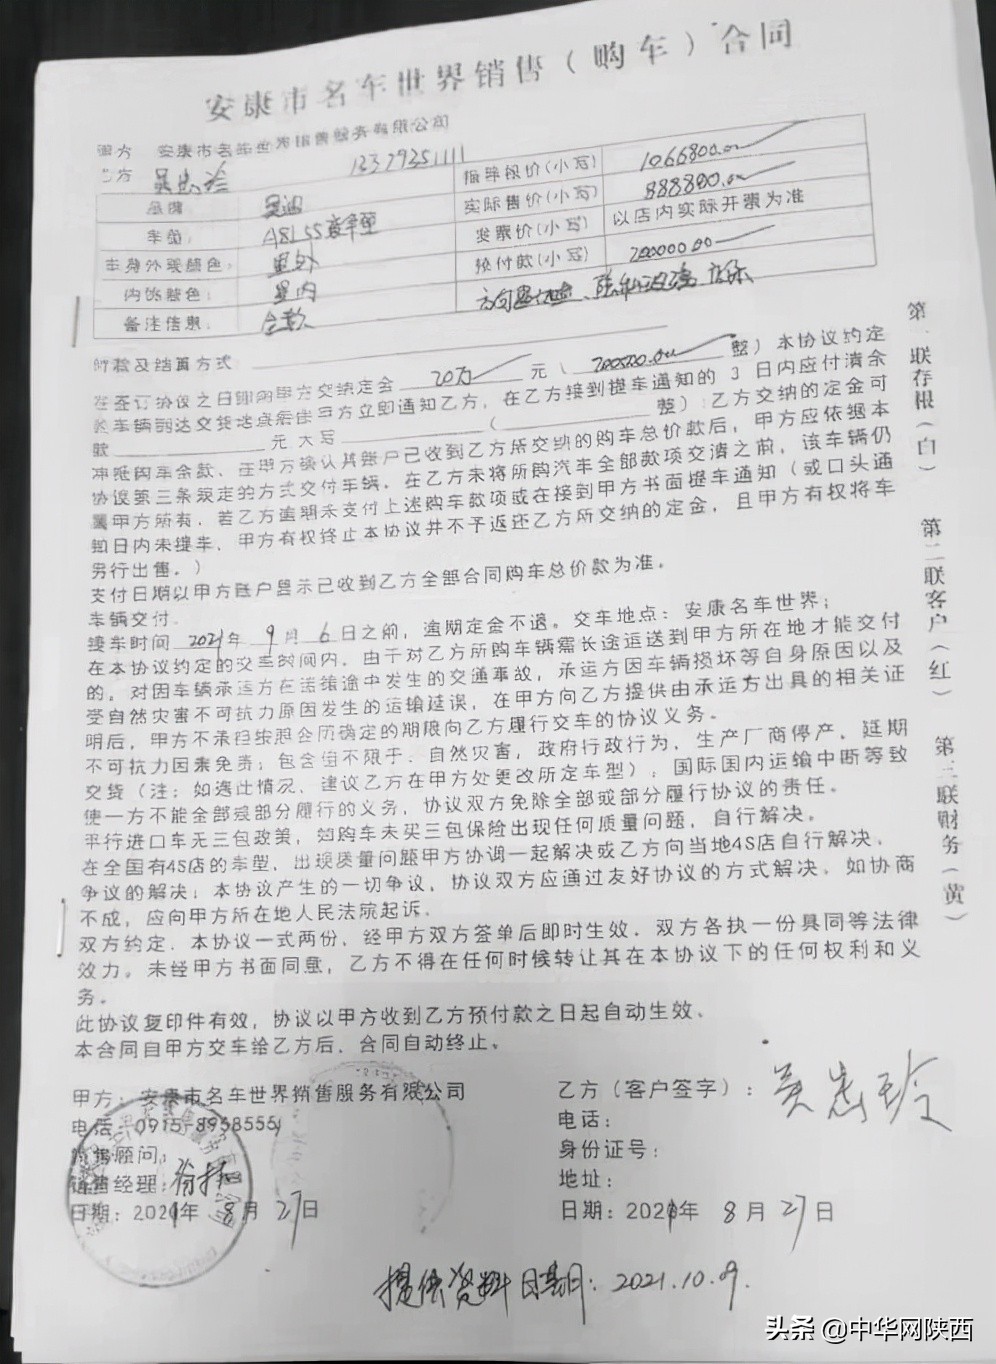 安康市名车世界销售（购车）合同
甲方 安康市名车世界销售服务有限公司
乙方 吴忠玲 13379251111
指导报价(小写) 1066800.00
品牌 奥迪 实际售价(小写) 888800.00
车型: A8L 55豪华型 发票价(小写) 以店内实际开票为准
车身外观颜色: 黑外 预付款(小写) 200000.00
内饰颜色: 黑内
备注信息: 全款
付款及结算方式
在签订协议之日即向甲方交纳定金 20万 元（200000.00 整）本协议约定
的车辆到达交货地点后由甲方立即通知乙方，在乙方接到提车通知的 3 日内应付清余
款 元 大写 （ 整）乙方交纳的定金可
冲抵购车余款、在甲方确认其账户已收到乙方所交纳的购车总价款后，甲方应依据本
协议第三条规定的方式交付车辆，在乙方未将所购汽车全部款项交清之前，该车辆仍
属甲方所有，若乙方逾期未支付上述购车款项或在接到甲方书面提车通知（或口头通
知日内未提车，甲方有权终止本协议并不予返还乙方所交纳的定金，且甲方有权将车
另行出售。）
支付日期以甲方账户显示已收到乙方全部合同购车总价款为准。
车辆交付
接车时间 2021年 9月 6日之前，逾期定金不退。交车地点：安康名车世界；
在本协议约定的交车时间内，由于对乙方所购车辆需长途运送到甲方所在地才能交付
的，对因车辆承运方在运输途中发生的交通事故，承运方因车辆损坏等自身原因以及
受自然灾害不可抗力原因发生的运输延误，在甲方向乙方提供由承运方出具的相关证
明后，甲方不承担按照合同确定的期限向乙方履行交车的协议义务。
不可抗力因素免责；包含但不限于、自然灾害，政府行政行为，生产厂商停产，延期
交货（注：如遇此情况，建议乙方在甲方处更改所定车型）；国际国内运输中断等致
使一方不能全部或部分履行的义务，协议双方免除全部或部分履行协议的责任。
平行进口车无三包政策，如购车未买三包保险出现任何质量问题，自行解决。
在全国有4S店的车型，出现质量问题甲方协调一起解决或乙方向当地4S店自行解决，
争议的解决：本协议产生的一切争议，协议双方应通过友好协议的方式解决，如协商
不成，应向甲方所在地人民法院起诉.
双方约定、本协议一式两份，经甲方双方签单后即时生效．双方各执一份具同等法律
效力。未经甲方书面同意，乙方不得在任何时候转让其在本协议下的任何权利和义
务。
此协议复印件有效，协议以甲方收到乙方预付款之日起自动生效、
本合同自甲方交车给乙方后、合同自动终止。
甲方：安康市名车世界销售服务有限公司
电话：0915-8958555
销售顾问：
销售经理：
日期：2021年 8月 27日
乙方（客户签字）：吴忠玲
电话：
身份证号：
地址：
日期：2021年 8月 27日
提供资料日期：2021.10.9.
第一联存根（白）
第二联客户（红）
第三联财务（黄）
头条 @中华网陕西